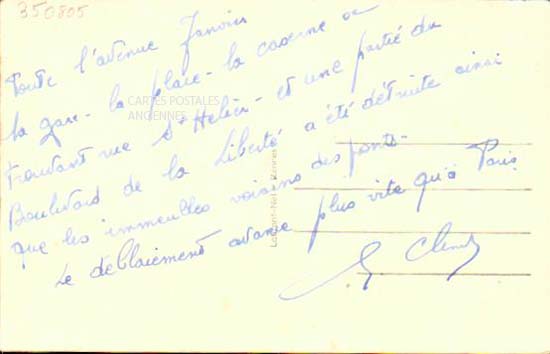 350805
Toute l'avenue Janvier
la gare - la place - la caserne se
trouvant rue St Helier - et une partie du
Boulevard de la Liberté a été détruite ainsi
que les immeubles voisins des ponts -
Le déblaiement avance plus vite qu'à Paris
CARTES POSTALES
ANCIENNES
Rennes